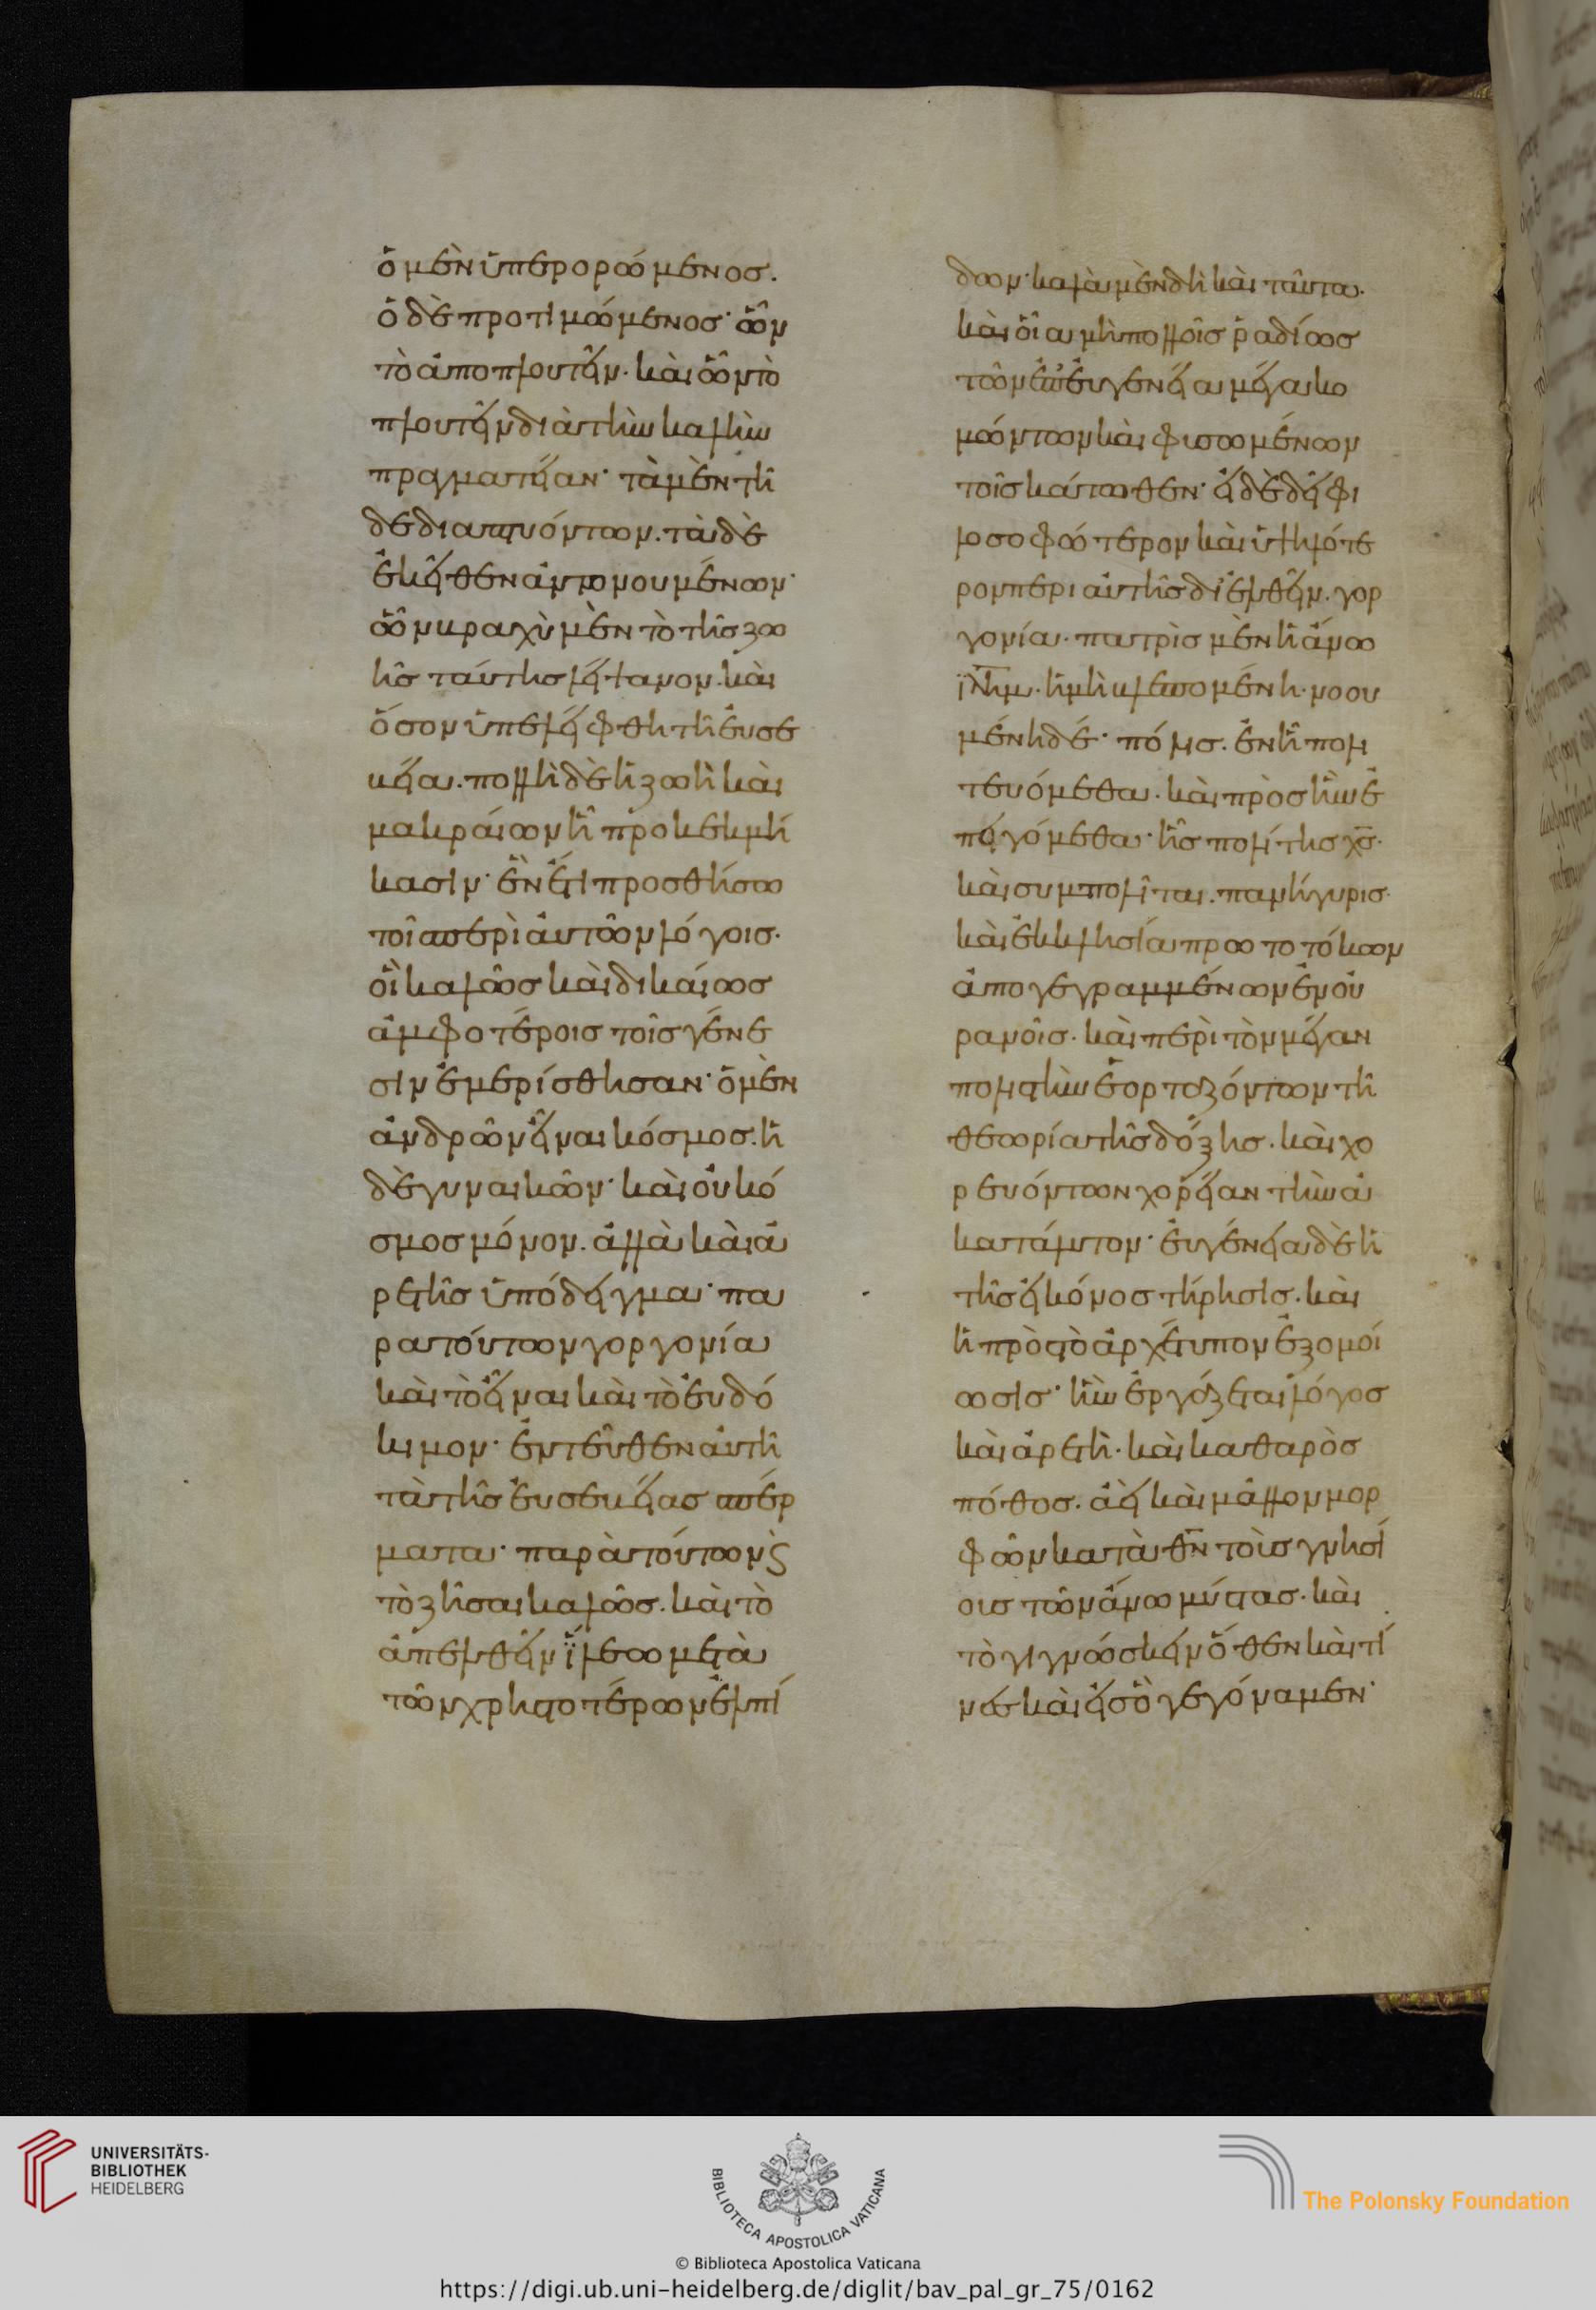 ὁ μὲν ὑπερορώμενος.
ὁ δὲ προτιμώμενος· ὧν
τὸ ἀποπλουτεῖν. καὶ ὧν τὸ
πλουτεῖν διὰ τὴν καλὴν
πραγματείαν· τὰ μὲν τῆ
δε διαπτυόντων. τὰ δὲ
ἐκεῖθεν ἀντωνουμένων·
ὧν βραχὺ μὲν τὸ τῆς ζω
ῆς ταύτης λείψανον. καὶ
ὅσον ὑπελείφθη τῆ εὐσε
βεία. πολλὴ δὲ ἡ ζωὴ καὶ
μακραίων ἧ προκεκμή
κασιν· ἓν ἔτι προσθήσω
τοῖς περὶ αὐτῶν λόγοις.
οἳ καλῶς καὶ δικαίως
ἀμφοτέροις τοῖς γένε
σιν ἐμερίσθησαν· ὁ μὲν
ἀνδρῶν εἶναι κόσμος. ἡ
δὲ γυναικῶν· καὶ οὐ κό
σμος μόνον. ἀλλὰ καὶ ἀ
ρετῆς ὑπόδειγμα· πα
ρα τούτων γοργονία
καὶ τὸ εἶναι καὶ τὸ εὐδό
κιμον· ἐντεῦθεν αὐτῆ
τὰ τῆς εὐσεβείας σπέρ
ματα· παρὰ τούτων ϛ̀
τὸ ζῆσαι καλῶς. καὶ τὸ
ἀπελθεῖν ἵλεω μετὰ
τῶν χρηστοτέρων ἐλπί
δων· καλὰ μὲν δὴ καὶ ταῦτα.
καὶ οἷα μὴ πολλοῖς ῥαδίως
τῶν ἐπ' εὐγενεία μέγα κο
μώντων καὶ φυσωμένων
τοῖς κάτωθεν· εἰ δὲ δεῖ φι
λοσοφώτερον καὶ ὑψηλότε
ρον περι αὐτῆς διελθεῖν. γορ
γονία. πατρὶς μὲν ἡ ἄνω
ϊλημ. ἡ μὴ βλεπομένη. νοου
μένη δέ· πόλις. ἐν ἧ πολι
τευόμεθα. καὶ πρὸς ἣν ἐ
πειγόμεθα· ἧς πολίτης χς.
καὶ συμπολῖται. πανήγυρις.
καὶ ἐκκλησία πρωτοτόκων
ἀπογεγραμμένων ἐν οὐ
ρανοῖς. καὶ περὶ τὸν μέγαν
πολιστὴν ἑορταζόντων τῆ
θεωρία τῆς δόξης. καὶ χο
ρευόντων χορείαν τὴν ἀ
κατάλυτον· εὐγένεια δὲ ἡ
τῆς εἰκόνος τήρησις. καὶ
ἡ πρὸς τὸ ἀρχέτυπον ἐξομοί
ωσις· ἣν ἐργάζεται λόγος
καὶ ἀρετὴ. καὶ καθαρὸς
πόθος. ἀεὶ καὶ μᾶλλον μορ
φῶν κατὰ θν τοὺς γνησί
ους τῶν ἄνω μύστας. καὶ
τὸ γιγνώσκειν ὅθεν καὶ τί
νες καὶ εἰς ὃ γεγόναμεν·
UNIVERSITÄTS-
BIBLIOTHEK
HEIDELBERG
BIBLIOTECA APOSTOLICA VATICANA
© Biblioteca Apostolica Vaticana
The Polonsky Foundation
https://digi.ub.uni-heidelberg.de/diglit/bav_pal_gr_75/0162